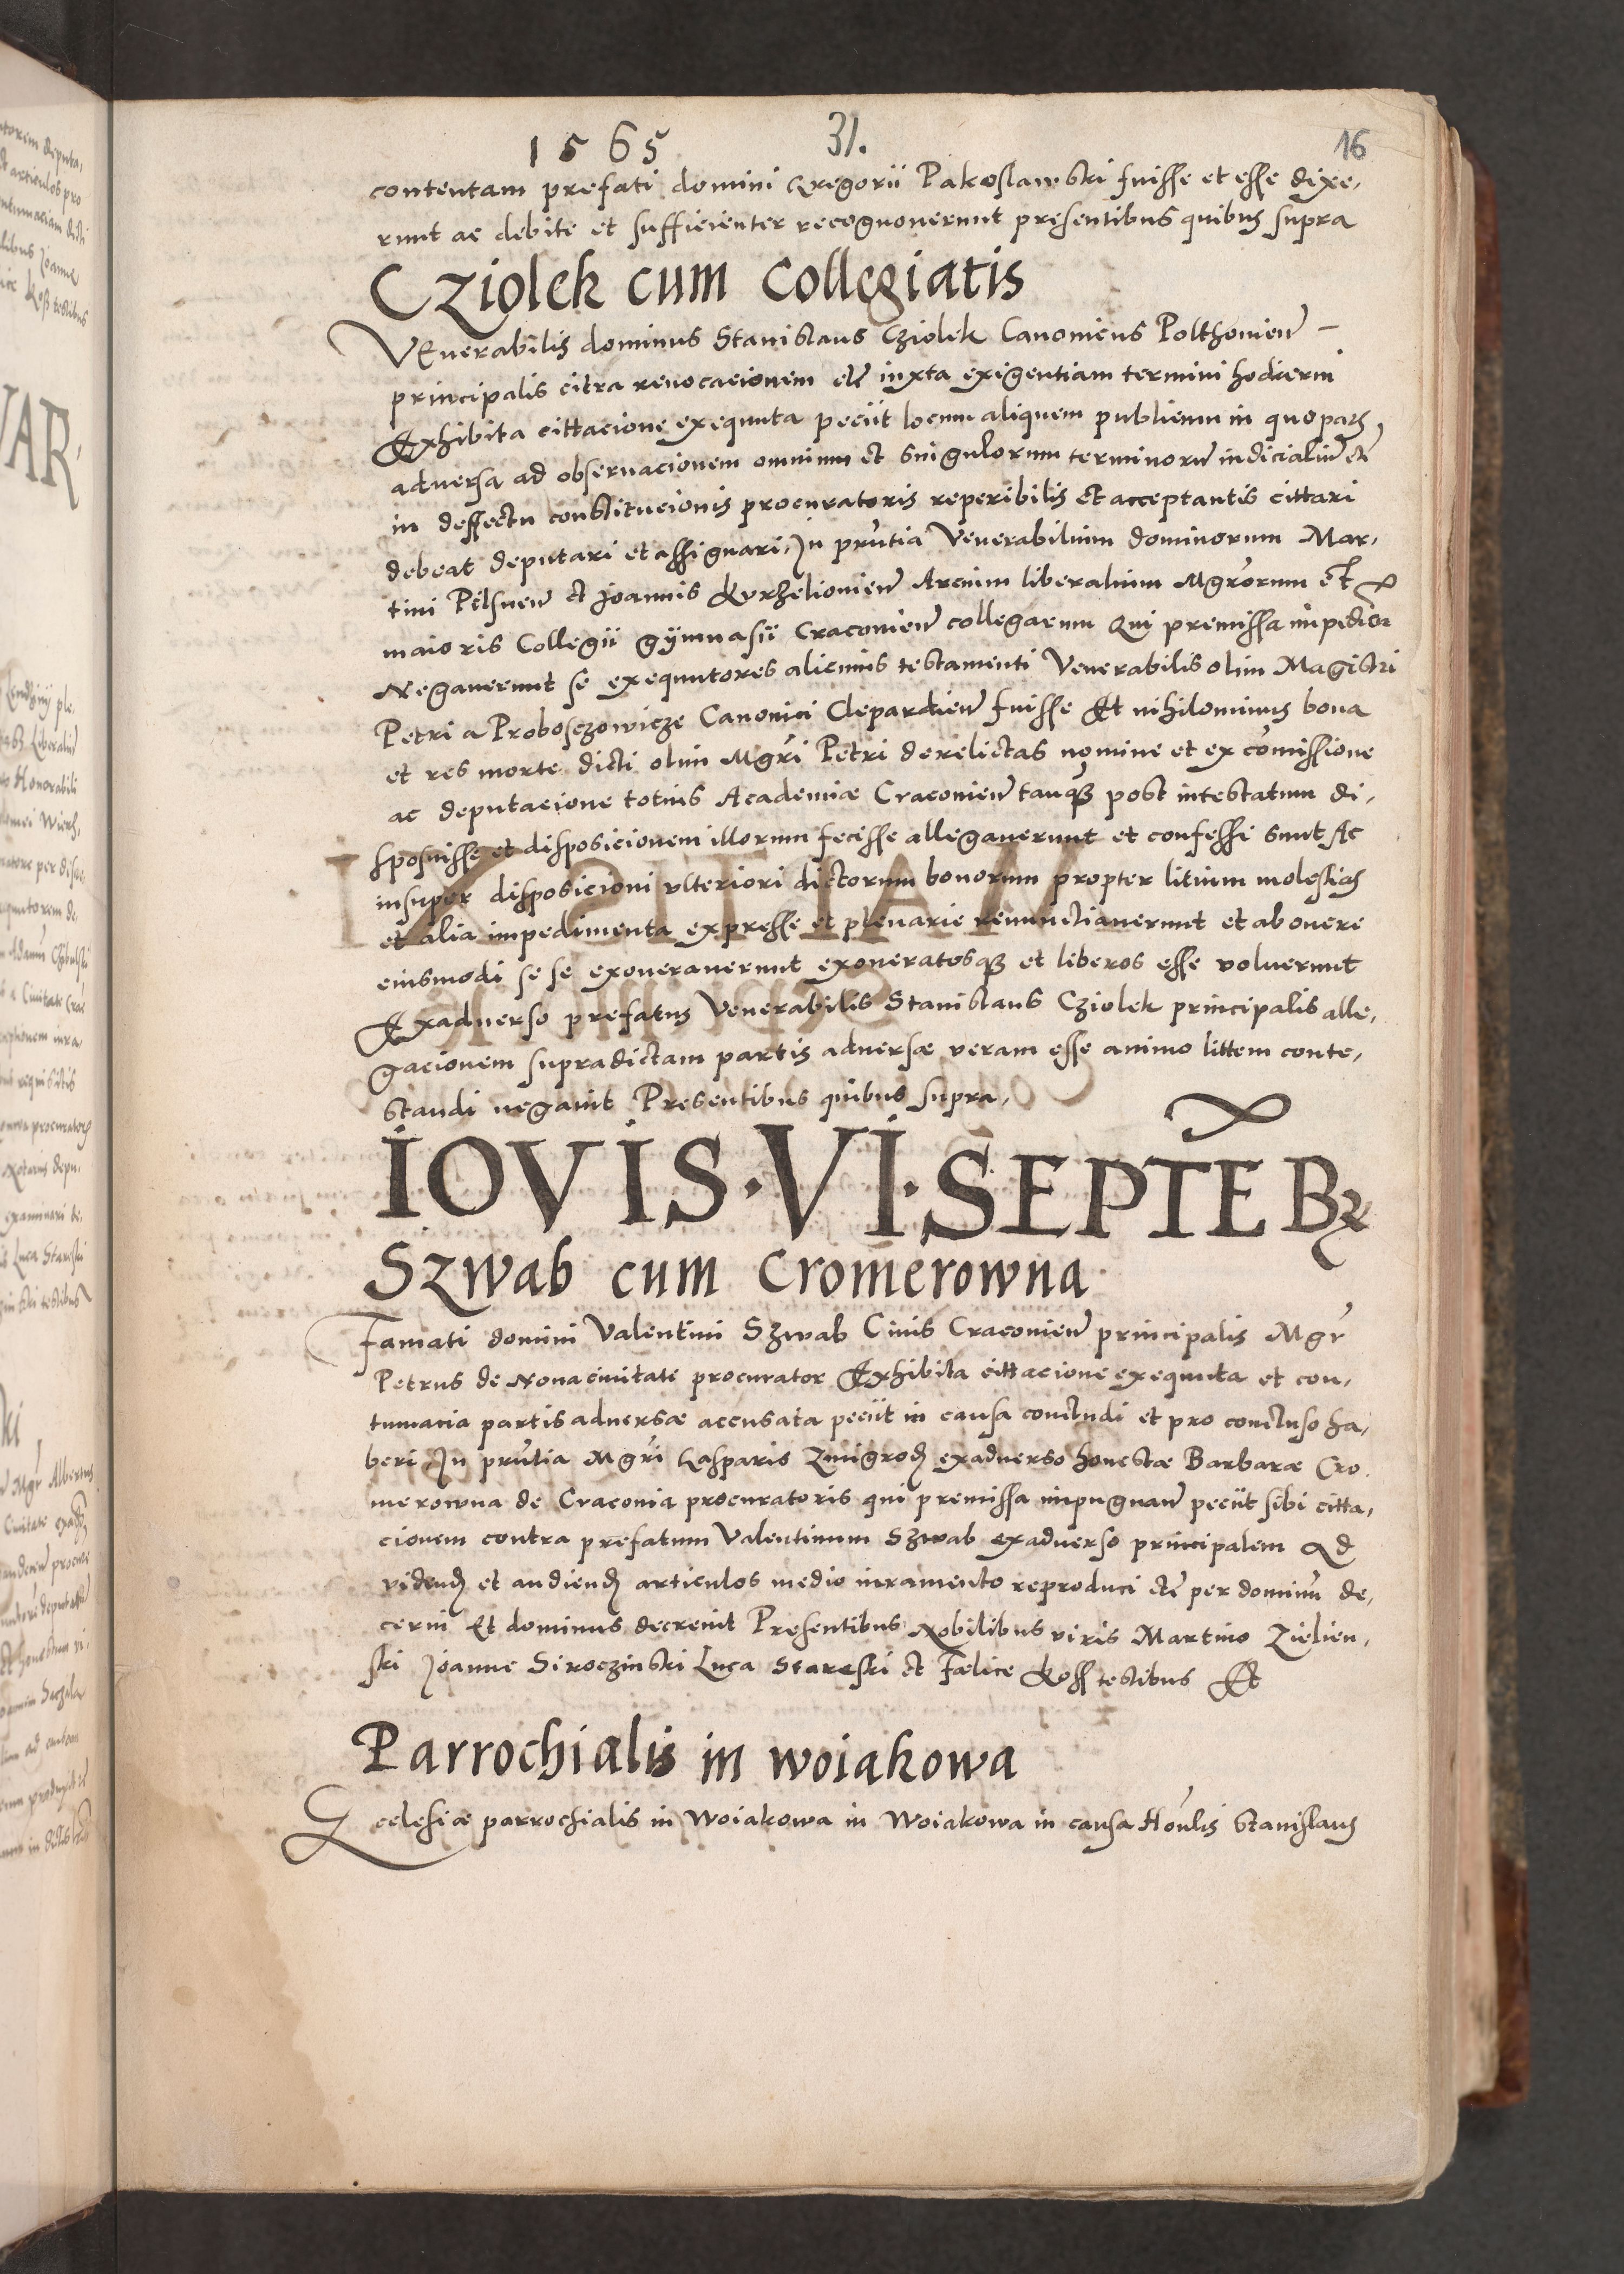 1565 31. 16
contentam prefati domini Gregorii Pakoslawski fuisse et esse dixe,
runt ac debite et sufficienter recognouerunt presentibus quibus supra
Cziolek cum Collegiatis
VEnerabilis dominus Stanislaus Cziolek Canonicus Polthonien̄ –
principalis citra reuocacionem etc̄ iuxta exigentiam termini hodierni
Exhibita cittacione exequuta peciit locum aliquem publicum in quo pars
aduersa ad obseruacionem omnium et singulorum terminorū iudicialiū etc̄
in deffectu constitucionis procuratoris reperibilis et acceptantis cittari
debeat deputari et assignari, In prn̄tia Venerabilium dominorum Mar,
tini Pilsnen̄ et Joannis Kurzelionien̄ Arcium liberalium Mgr̄orum et
maioris Collegii gÿmnasii Cracouien̄ collegarum Qui premissa impedien̄
Negauerunt se exequutores alicuius testamenti Venerabilis olim Magistri
Petri a Proboszczowicze Canonici Clepardien̄ fuisse Et nihilominus bona
et res morte dicti olim Mgr̄i Petri derelictas nomine et ex com̄issione
ac deputacione totius Academiæ Cracouien̄ tanqȝ post intestatum di,
sposuisse et disposicionem illorum fecisse allegauerunt et confessi sunt Ac
insuper disposicioni vlteriori dictorum bonorum propter litium molestias
et alia impedimenta expresse et plenarie renunctiauerunt et ab onere
eiusmodi se se exonerauerunt exoneratosqȝ et liberos esse voluerunt
Exaduerso prefatus Venerabilis Stanislaus Cziolek principalis alle,
gacionem supradictam partis aduersæ veram esse animo littem conte,
standi negauit Presentibus quibus supra,
IOVIS · VI · SEPTĒBꝝ
Szwab cum Cromerowna
Famati domini Valentini Szwab Ciuis Cracouien̄ principalis Mgr̄
Petrus de Noua ciuitate procurator Exhibita cittacione exequuta et con,
tumacia partis aduersæ accusata peciit in causa concludi et pro concluso ha,
beri In prn̄tia Mgr̄i Gasparis Zmigrod exaduerso honestæ Barbaræ Cro
merowna de Craconia procuratoris qui premissa impugnan̄ peciit sibi citta,
cionem contra prefatum Valentinum Szwab exaduerso principalem Ad
vidend et audiend articulos medio iuramento reproduci etc̄ per dominū de,
cerni Et dominus decreuit Presentibus Nobilibus viris Martino Zielien,
ski Joanne Siroczinski Luca Stareski et Fælice Koss testibus Et
Parrochialis in woiakowa
Ecclesiæ parrochialis in Woiakowa in Woiakowa in causa Hon̄lis Stanislaus